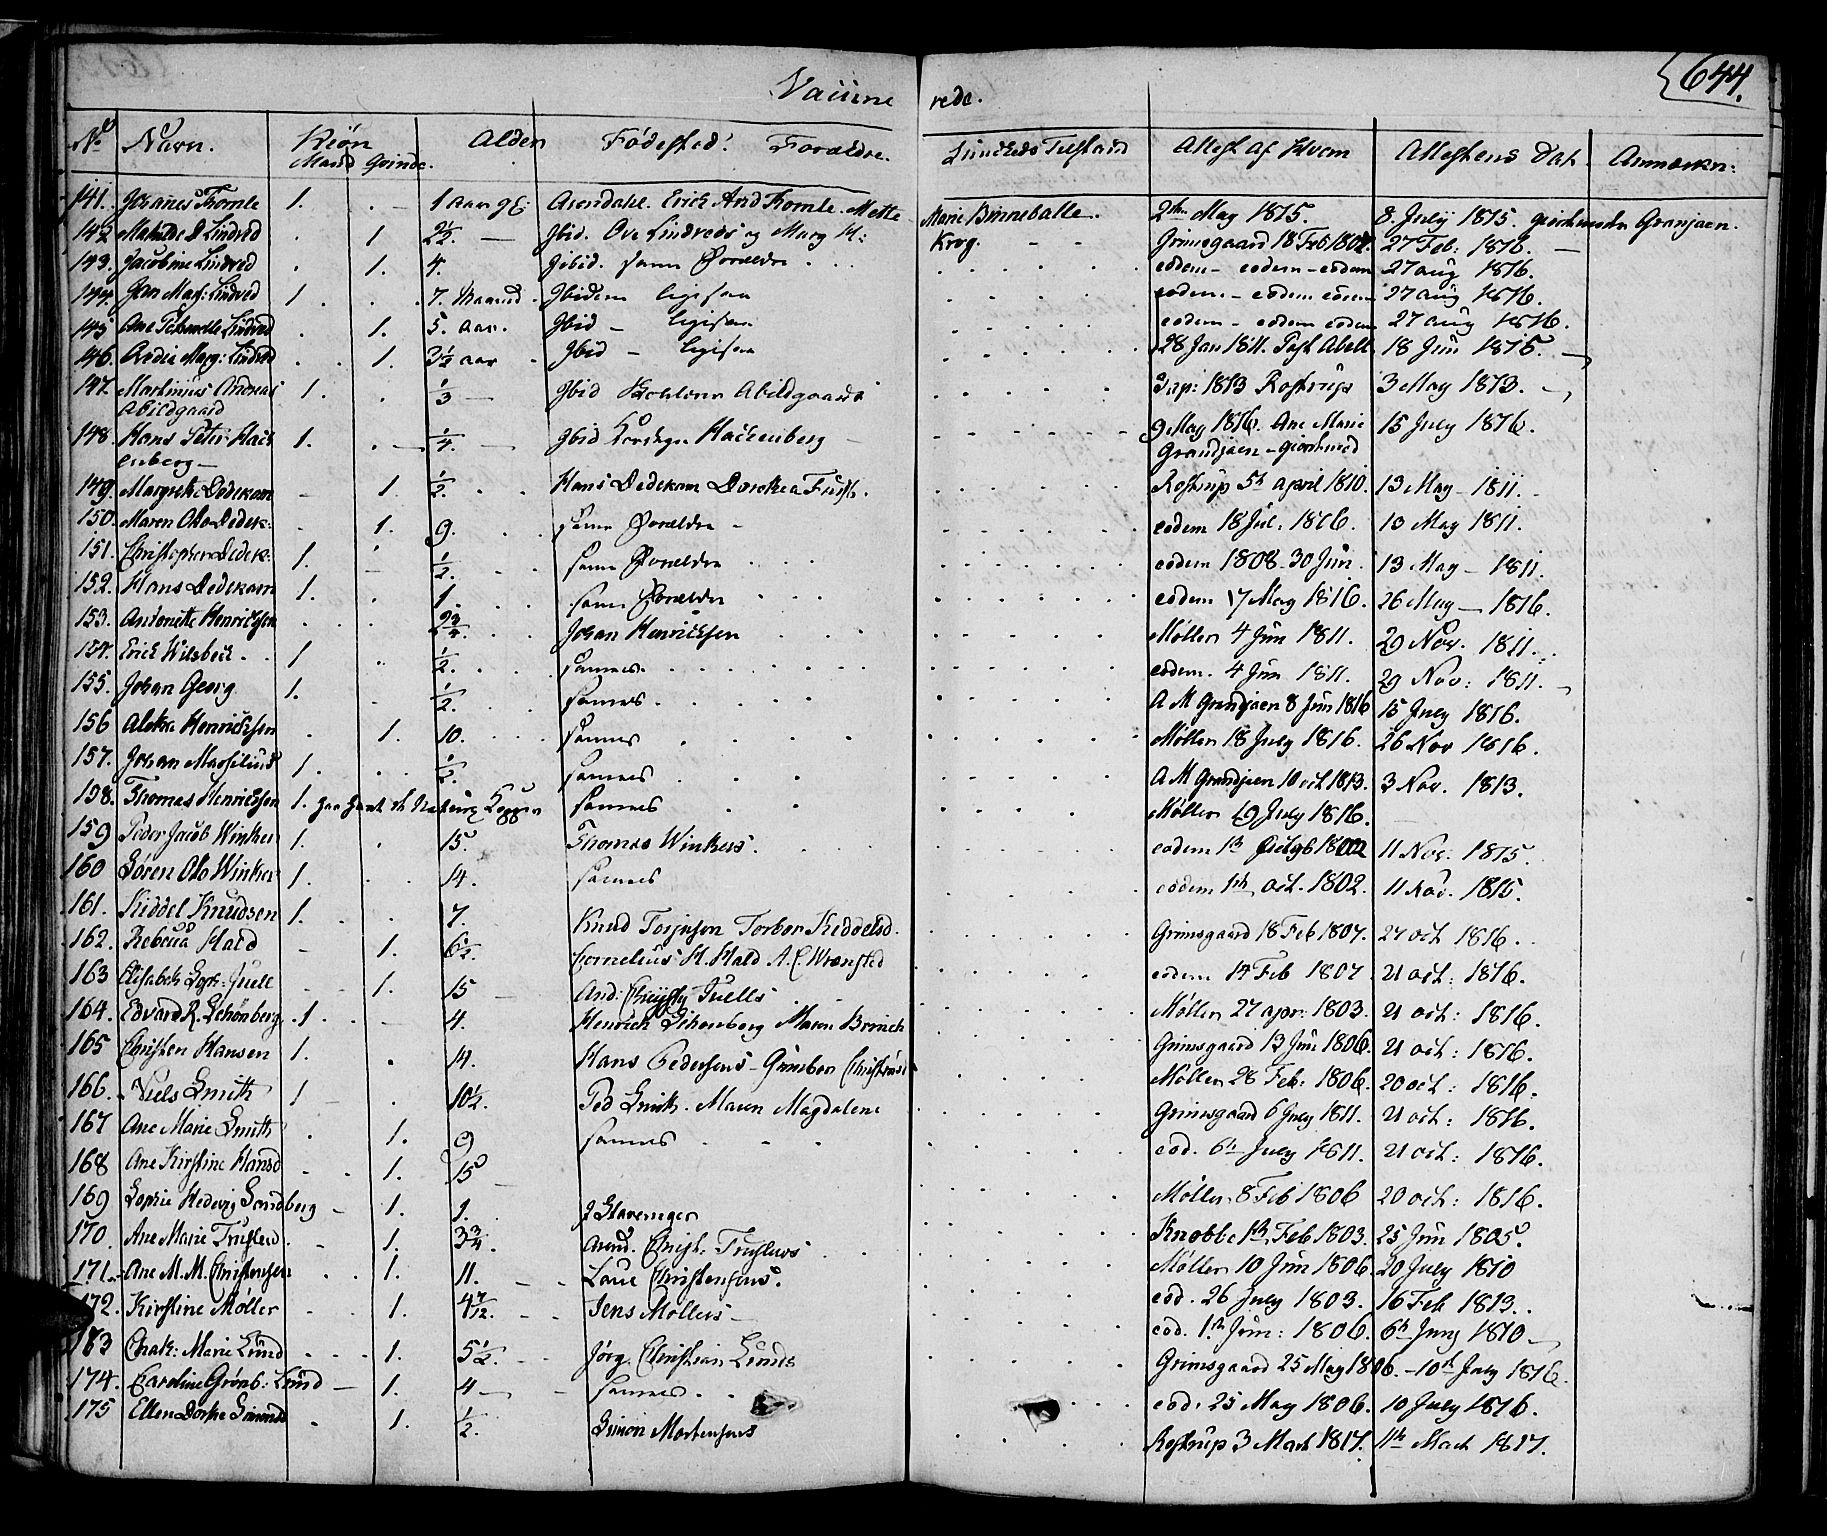 644.
Vaccine rede.
No Navn. Kiøn Alder Fødested: Forældre. Attest af Hvem Attestens Dat. Anmærkn:
Mand Qvinde.
141. Johanes Tromle 1. 1 Aar gl: Arendahl. Erich And Tromle. Mette Marie Binneballe. May 1815. 8. July 1815. Grandjaen.
142 Lindved 1 2½. Ibid. Ove Lindveds og Marg H: Krog. Grimsgaard 18 Feb 1807. 27 Feb: 1816.
143. Jacobine Lindved 1. 4. Ibid. samme Forældre eodem - eodem - eodem 27 aug 1816.
144. Jan Mag: Lindved 1. 7. Maaned Ibidem ligesaa eodem - eodem eodem 27 aug 1816.
145 Ane Lindved 1. 5. Aar. Ibid - ligesaa eodem - eodem eodem 27 aug 1816.
146. Marg: Lindved 1. 3½ aar Ibid - ligesaa 28 Jan 1811. Past Abell 18 Jun 1816.
147. Martinius Andreas 1. 1/3 Ibid Abildgaards 1813 Rostrup 3 May 1813.
Abildgaard
148. Hans Peter Hack 1. ¼. Ibid Hackenberg 9 May 1816. Ane Marie 15 July 1816.
enberg - Grandjaen - Giordemod
149. Margrete Dedekam 1. ½. Hans Dedekam Dorthea Rostrup 5th april 1810. 13 May 1811.
150. Maren Oto Dedek: 1. 9. samme Forældre eodem 18 Jul: 1816. 13 May 1811.
151. Christopher Dedek: 1. ½. samme Forældre eodem 1808 30 Jun. 13 May - 1811.
152. Hans Dedekam 1. 1 samme Forældre eodem 17 May 1816. 26 May - 1816.
153. Antonette Henrichsen Johan Henrichsen Møller 4 Jun 1811. 29 Nov. 1811.
154. Erich Wilsbech 1 ½. sammes eodem. 4 Jun 1811. 29 Nov: 1811.
155. Johan Georg 1. ½. sammes A M Grandjaen 8 Jun 1816 15 July 1816.
156 Henrichsen 1. 10. sammes Møller 18 July 1816. 26 Nov 1816.
157. Johan 1. sammes A M Grandjaen 10 oct 1813. 3 Nov. 1813.
158. Thomas Henrichsen 1. har havt de Naturl Kopper sammes Møller 19 July 1816.
159 Peder Jacob Winther 1. 15. Thomas Winthers. eodem 11 Nov: 1815.
160 Søren Oto Winther 1. 14. sammes eodem 1th oct. 1802. 11 Nov. 1815.
161. Kiddel Knudsen 1. 7. Knud Torjusen Torbor Kiddelsd. Grimsgaard 18 Feb 1807. 27 oct 1816.
162. Rebecca Hald 1. 6½. Cornelius H. Hald A. C Wrensted eodem 14 Feb 1807 21 oct: 1816.
163 Elisabeth Soph: Juell 1. 15 And: Juells Møller 27 apr: 1803. 21 oct: 1816.
164. Edvard R. Schønberg 1 4. Henrich Schønberg Maren Brinch Grimsgaard 13 Jun 1806. 21 oct: 1816.
165 Christen Hansen 1. 14. Hans Pedersens - Gunbor Christensd Møller 28 Feb: 1806. 20 oct: 1816.
166. Niels Smith 1 10½. Ped Smith. Maren Magdalene Grimsgaard 6 July 1811. 21 oct: 1816.
167 Ane Marie Smith 1. 9 sammes eod. 6th July 1811. 21 oct: 1816.
168 Ane Kirstine Hansd 1. 15 Møller 8 Feb 1806 20 oct: 1816.
169 Sophie Hedevig Sandberg 1. 1. Knobbe 1th Feb 1803. 25 Jun 1805.
170. Ane Marie 1. 3¾. Christ. Møller 10 Jun 1806. 20 July 1810
171. Ane M. M. Christensen 1. 11. Laue Christensens. eod. 26 July 1803. 16 Feb 1813.
172. Kirstine Møller 1. 4 7/12. Jens Møllers eod. 1th Jun: 1806. 1810
173 Chath: Marie Lund 1. 5½. Jørg. Christian Lunds Grimsgaard 25 May 1806. - 10th July 1816.
174. Caroline Grønb: Lund 1. 4 sammes eod. 25 May 1806. 10 July 1816.
175 Ellen Dorthe Simonsd 1. ½. Simon Mortensens Rostrup 3 Mart 1817. 11th Mart 1817.